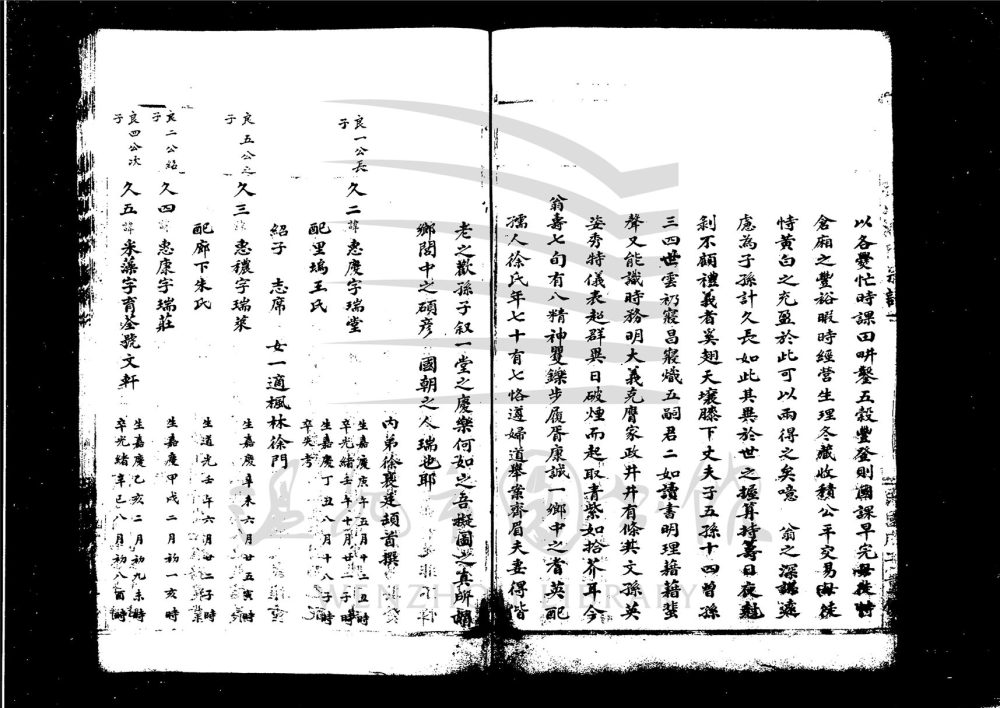 以各覺忙時課田畊鑿五穀豐登則國課早完毋後時
倉廂之豐裕暇時經營生理冬藏收積公平交易毋徒
恃黃白之充盈於此可以兩得之矣噫 翁之深謀遠
慮為子孫計久長如此其異於世之握算持籌日夜
剝不顧禮義者奚翅天壤膝下丈夫子五孫十四曾孫
三四世雲礽寢昌寢熾五嗣君二如讀書明理籍籍蜚
聲又能識時務明大義克膺家政井井有條其文孫英
姿秀特儀表超群異日破煙而起取青紫如拾芥耳今
翁壽七旬有八精神矍鑠步履胥康誠一鄉中之耆英配
孺人徐氏年七十有七恪遵婦道舉案齊眉夫妻得皆
老之歡孫子叙一堂之慶樂何如之吾擬圖之真所願
鄉閭中之碩彥 國朝之人瑞也耶
內弟徐襄廷頓首撰
良一公長子 久二 諱惠慶字瑞堂 生嘉慶庚午五月十二丑時 卒光緒壬午十月廿二子時
配里塢王氏 生嘉慶丁丑八月十八子時 卒失考
紹子 志席 女一適楓林徐門
良五公之子 久三 諱惠穠字瑞萊 生嘉慶辛未六月廿五寅時
配廊下朱氏 生道光壬午六月廿二子時
良二公紹子 久四 諱惠康字瑞莊 生嘉慶甲戌二月初一亥時
良四公次子 久五 諱采藻字育荃號文軒 生嘉慶乙亥二月初九未時 卒光緒辛巳八月初八酉時
WENZHOU LIBRARY